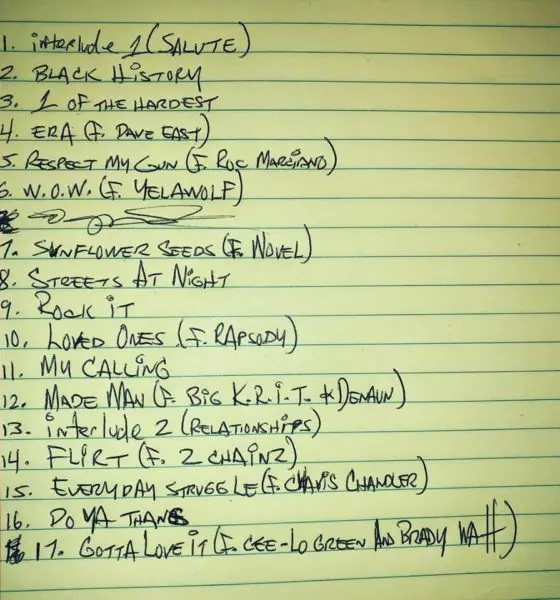 1. interlude 1 (SALUTE)
2. BLACK HISTORY
3. 1 OF THE HARDEST
4. ERA (F. DAVE EAST)
5. RESPECT MY GUN (F. ROC MARCIANO)
6. W.O.W. (F. YELAWOLF)
7. SUNFLOWER SEEDS (F. NOVEL)
8. STREETS AT NIGHT
9. ROCK IT
10. LOVED ONES (F. RAPSODY)
11. MY CALLING
12. MADE MAN (F. BIG K.R.I.T. & DENAUN)
13. interlude 2 (RELATIONSHIPS)
14. FLIRT (F. 2 CHAINZ)
15. EVERYDAY STRUGGLE (F. CHAVIS CHANDLER)
16. DO YA THANG
17. GOTTA LOVE IT (F. CEE-LO GREEN AND BRADY WATT)